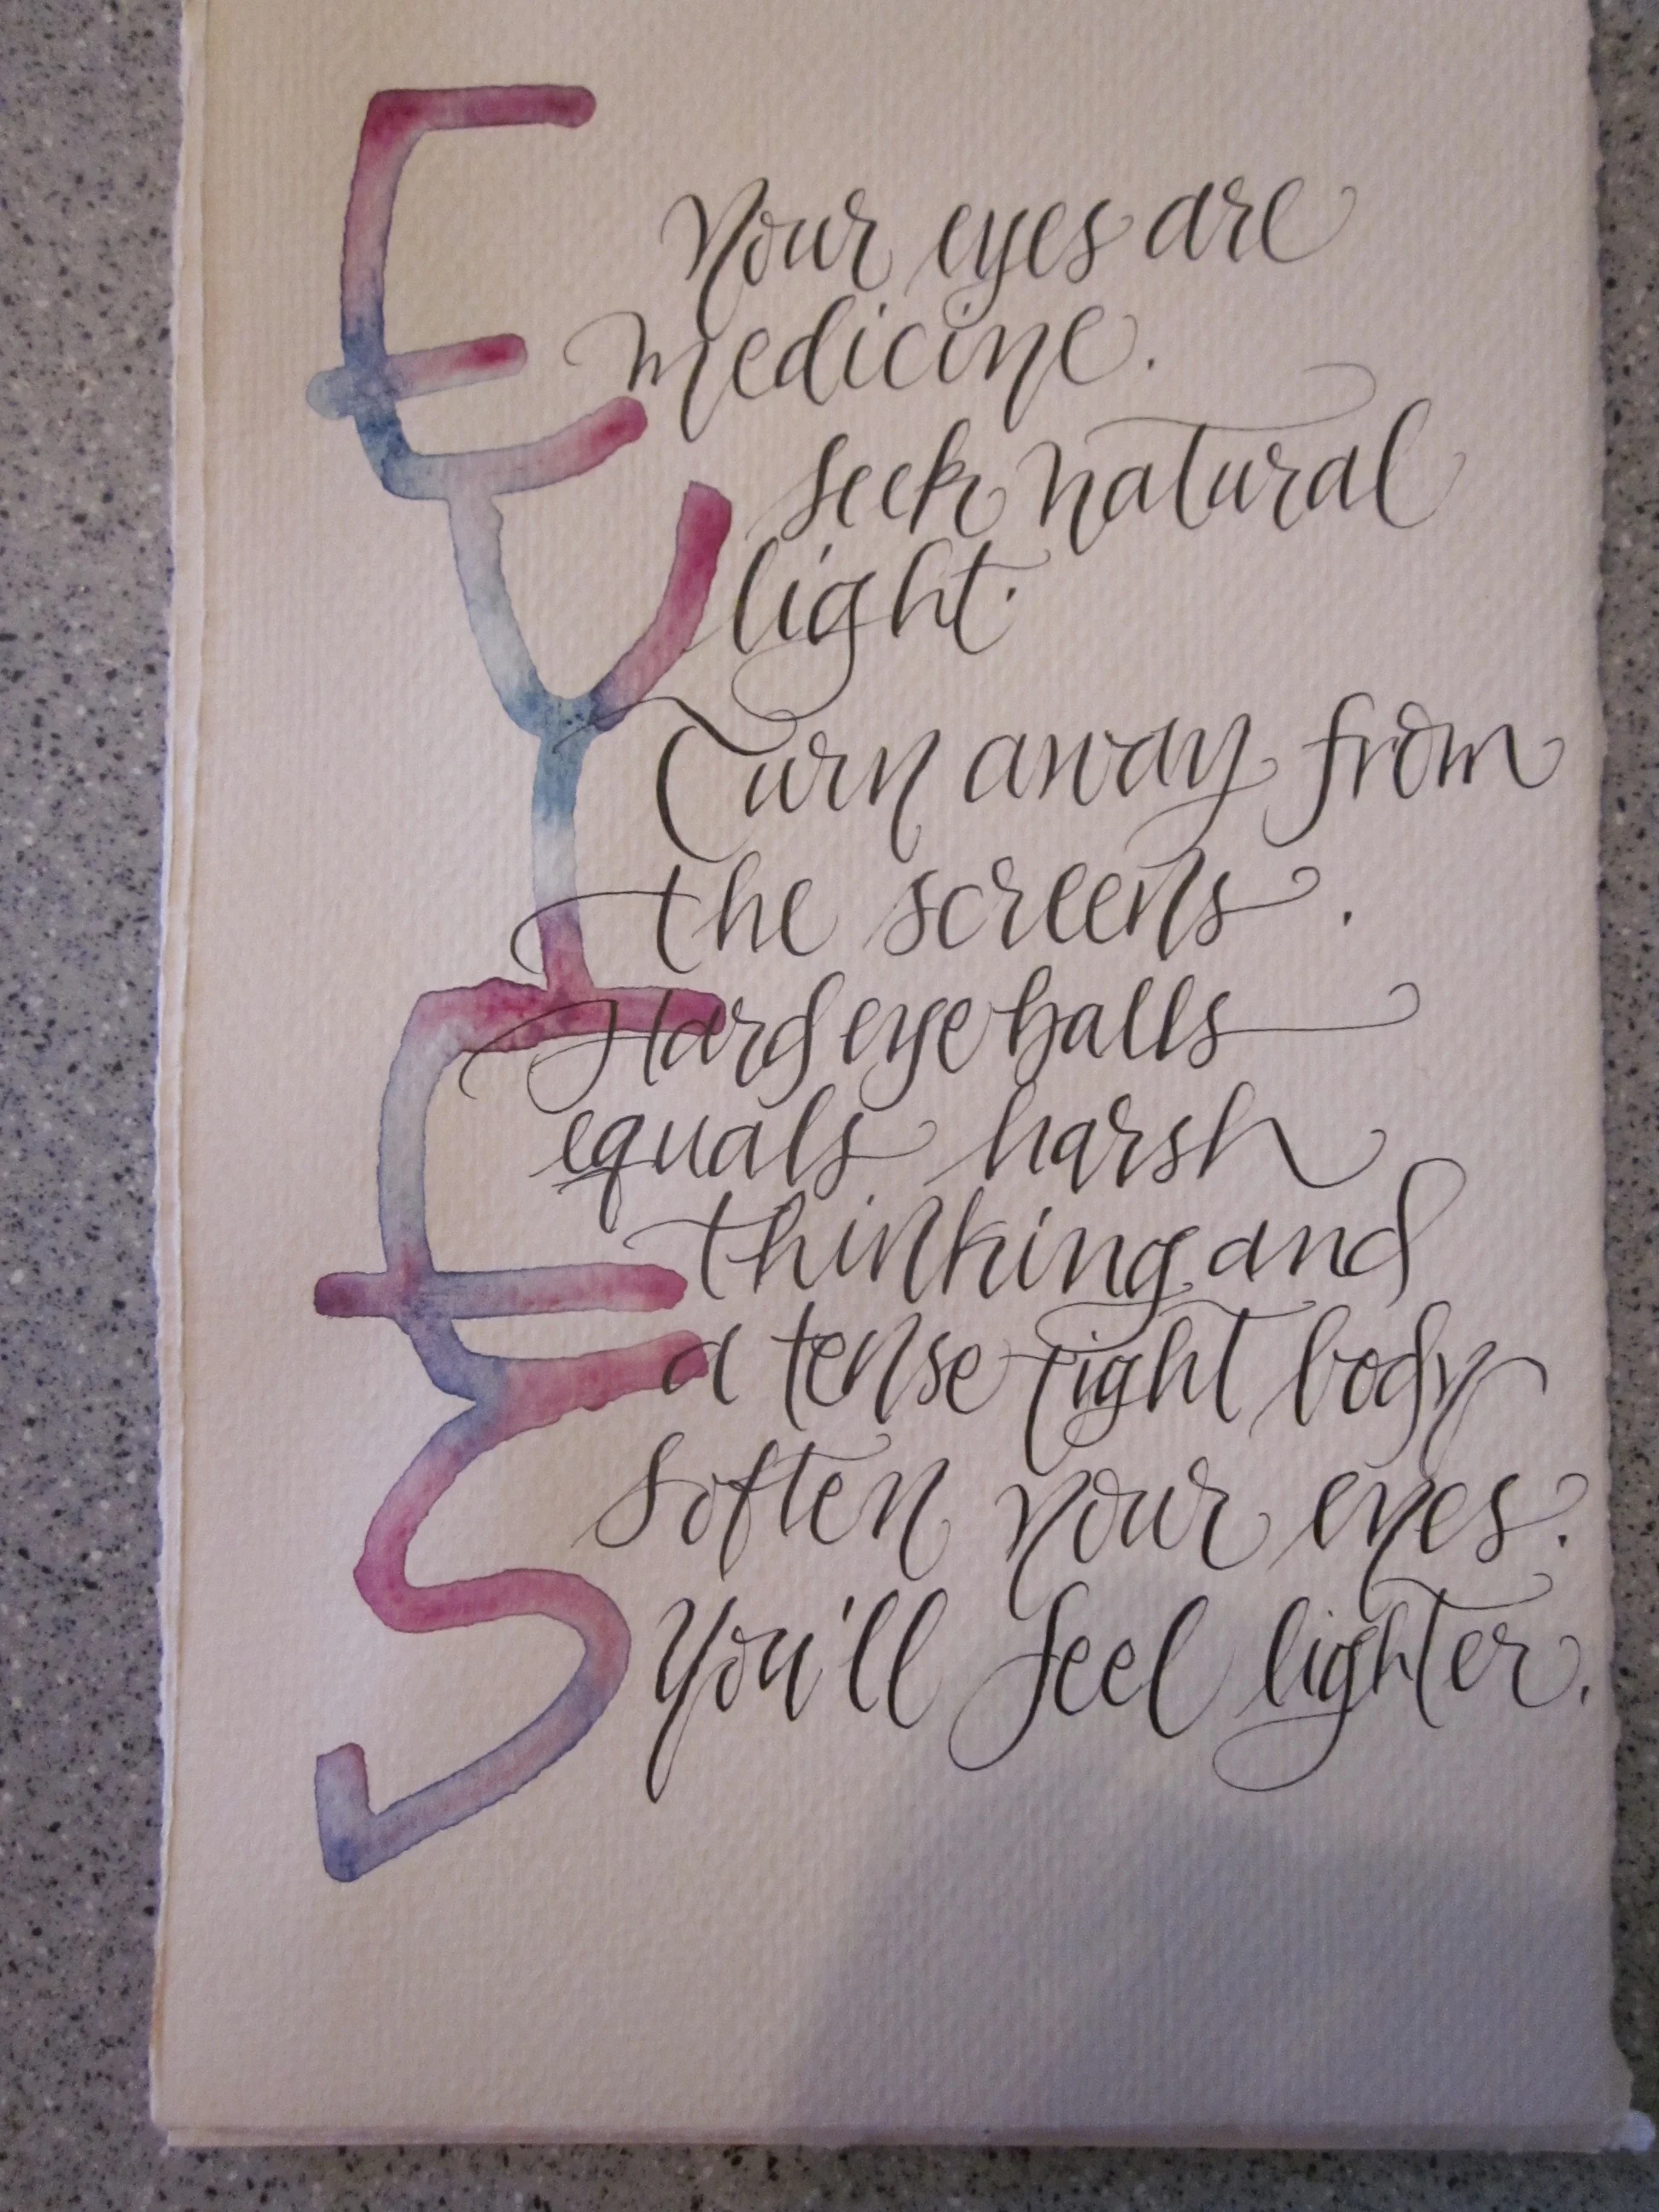 EYES
Your eyes are
medicine.
Seek natural
light.
Turn away from
the screens.
Hard eyeballs
equals harsh
thinking and
a tense tight body
Soften your eyes.
You'll feel lighter.